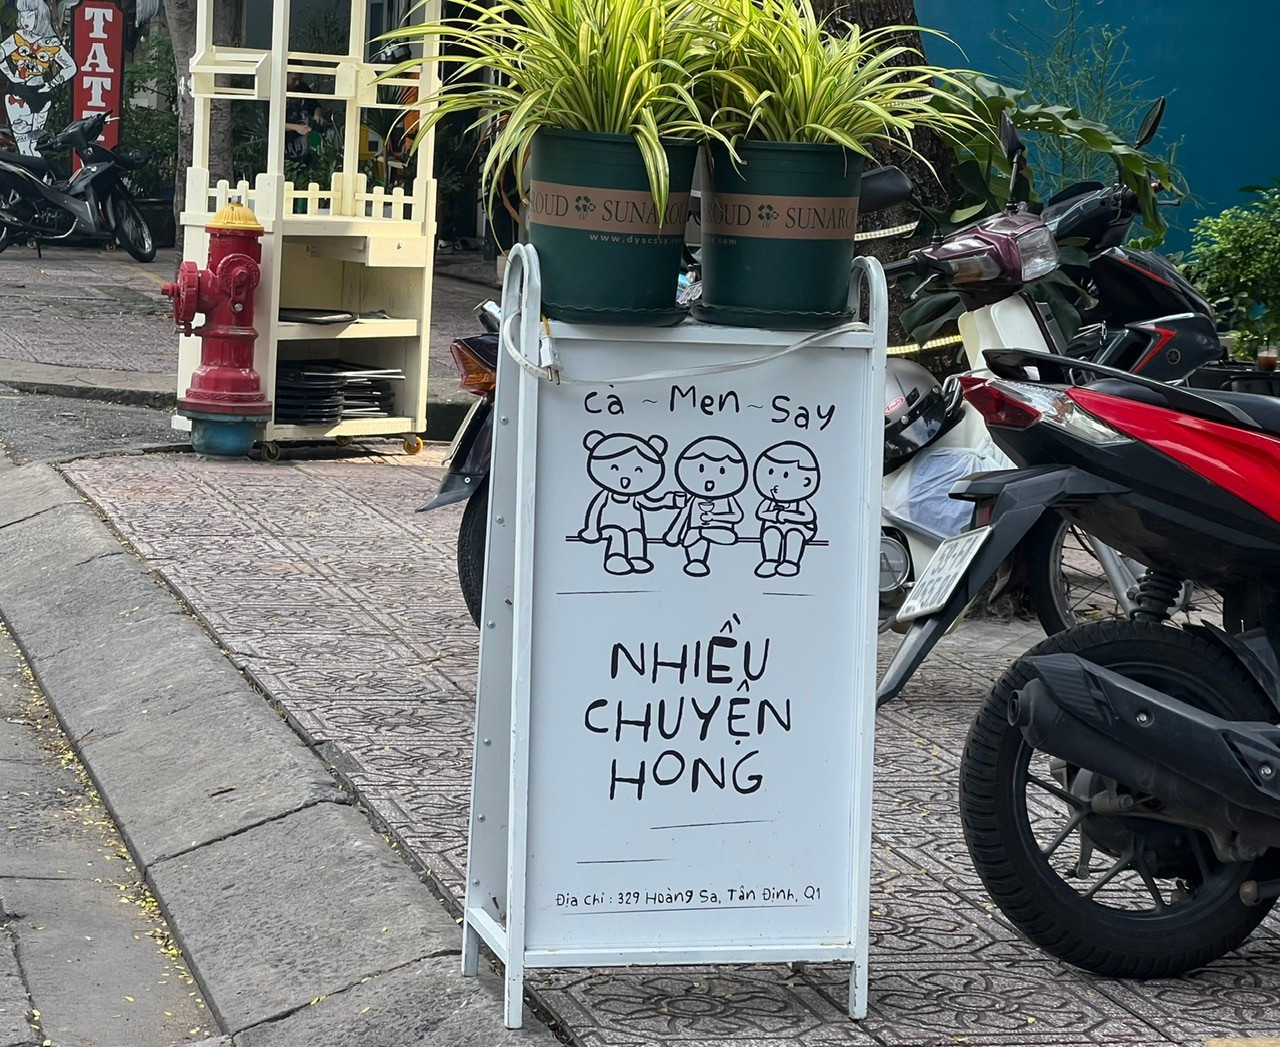 TAT
ROUD SUNARO
www.dyscssy.com
ROUD SUNARO
cà ~ Men ~ Say
NHIỀU
CHUYỆN
HONG
Địa chỉ : 329 Hoàng Sa, Tân Định, Q1